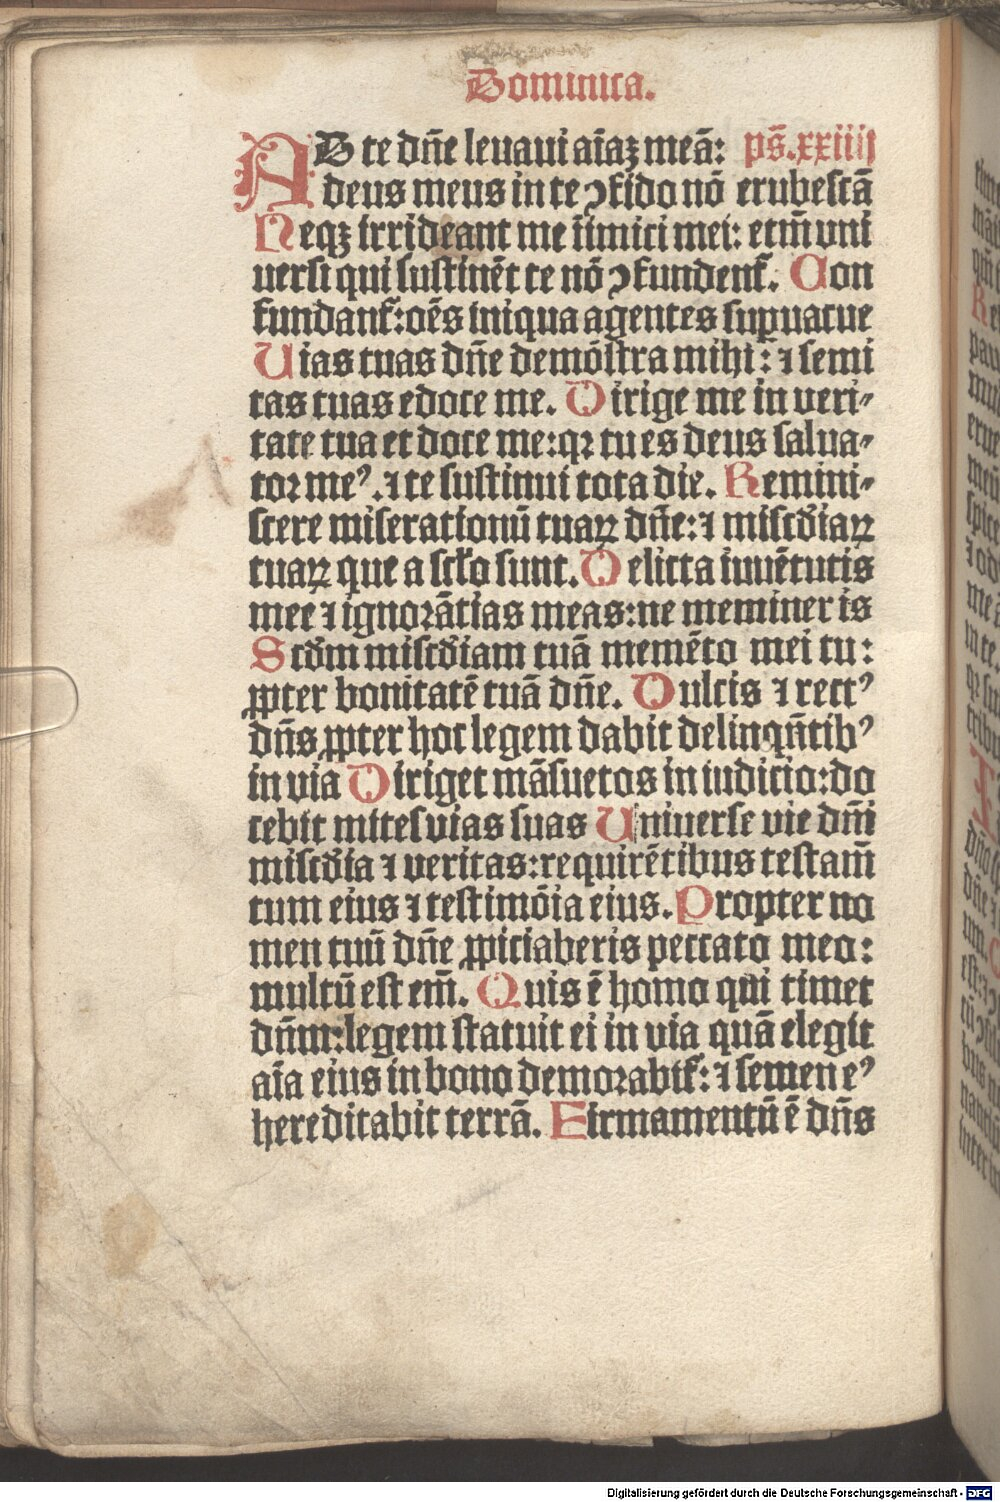 Dominica.
AD te dn̄e leuaui aīaꝫ meā: ps̄.xxiiij
deus meus in te ꝯfido nō erubescā
Neqꝫ irrideant me iīmici mei: etm̄ vni
uersi qui sustinēt te nō ꝯfundent᷑. Con
fundant᷑:oēs iniqua agentes supuacue
Uias tuas dn̄e demōstra mihi: ⁊ semi
tas tuas edoce me. Dirige me in veri⸗
tate tua et doce me:qꝛ tu es deus salua⸗
tor meꝰ.⁊ te sustinui tota die. Remini⸗
scere miserationū tuaꝝ dn̄e:⁊ misc̄diaꝝ
tuaꝝ que a sc̄lo sunt. Delicta iuuētutis
mee ⁊ ignorātias meas:ne memineris
Scd̄m misc̄diam tuā memēto mei tu:
ꝓpter bonitatē tuā dn̄e. Dulcis ⁊ rectꝰ
dn̄s ꝓpter hoc legem dabit delinqn̄tibꝰ
in via Diriget māsuetos in iudicio:do
cebit mites vias suas Uniuerse vie dn̄i
misc̄dia ⁊ veritas:requirētibus testam̄
tum eius ⁊ testimōia eius. Propter no
men tuū dn̄e ꝓpiciaberis peccato meo:
multū est em̄. Quis ē homo qui timet
dn̄m:legem statuit ei in via quā elegit
aīa eius in bono demorabit᷑: ⁊ semen eꝰ
hereditabit terrā. Firmamentū ē dn̄s
Digitalisierung gefördert durch die Deutsche Forschungsgemeinschaft - DFG